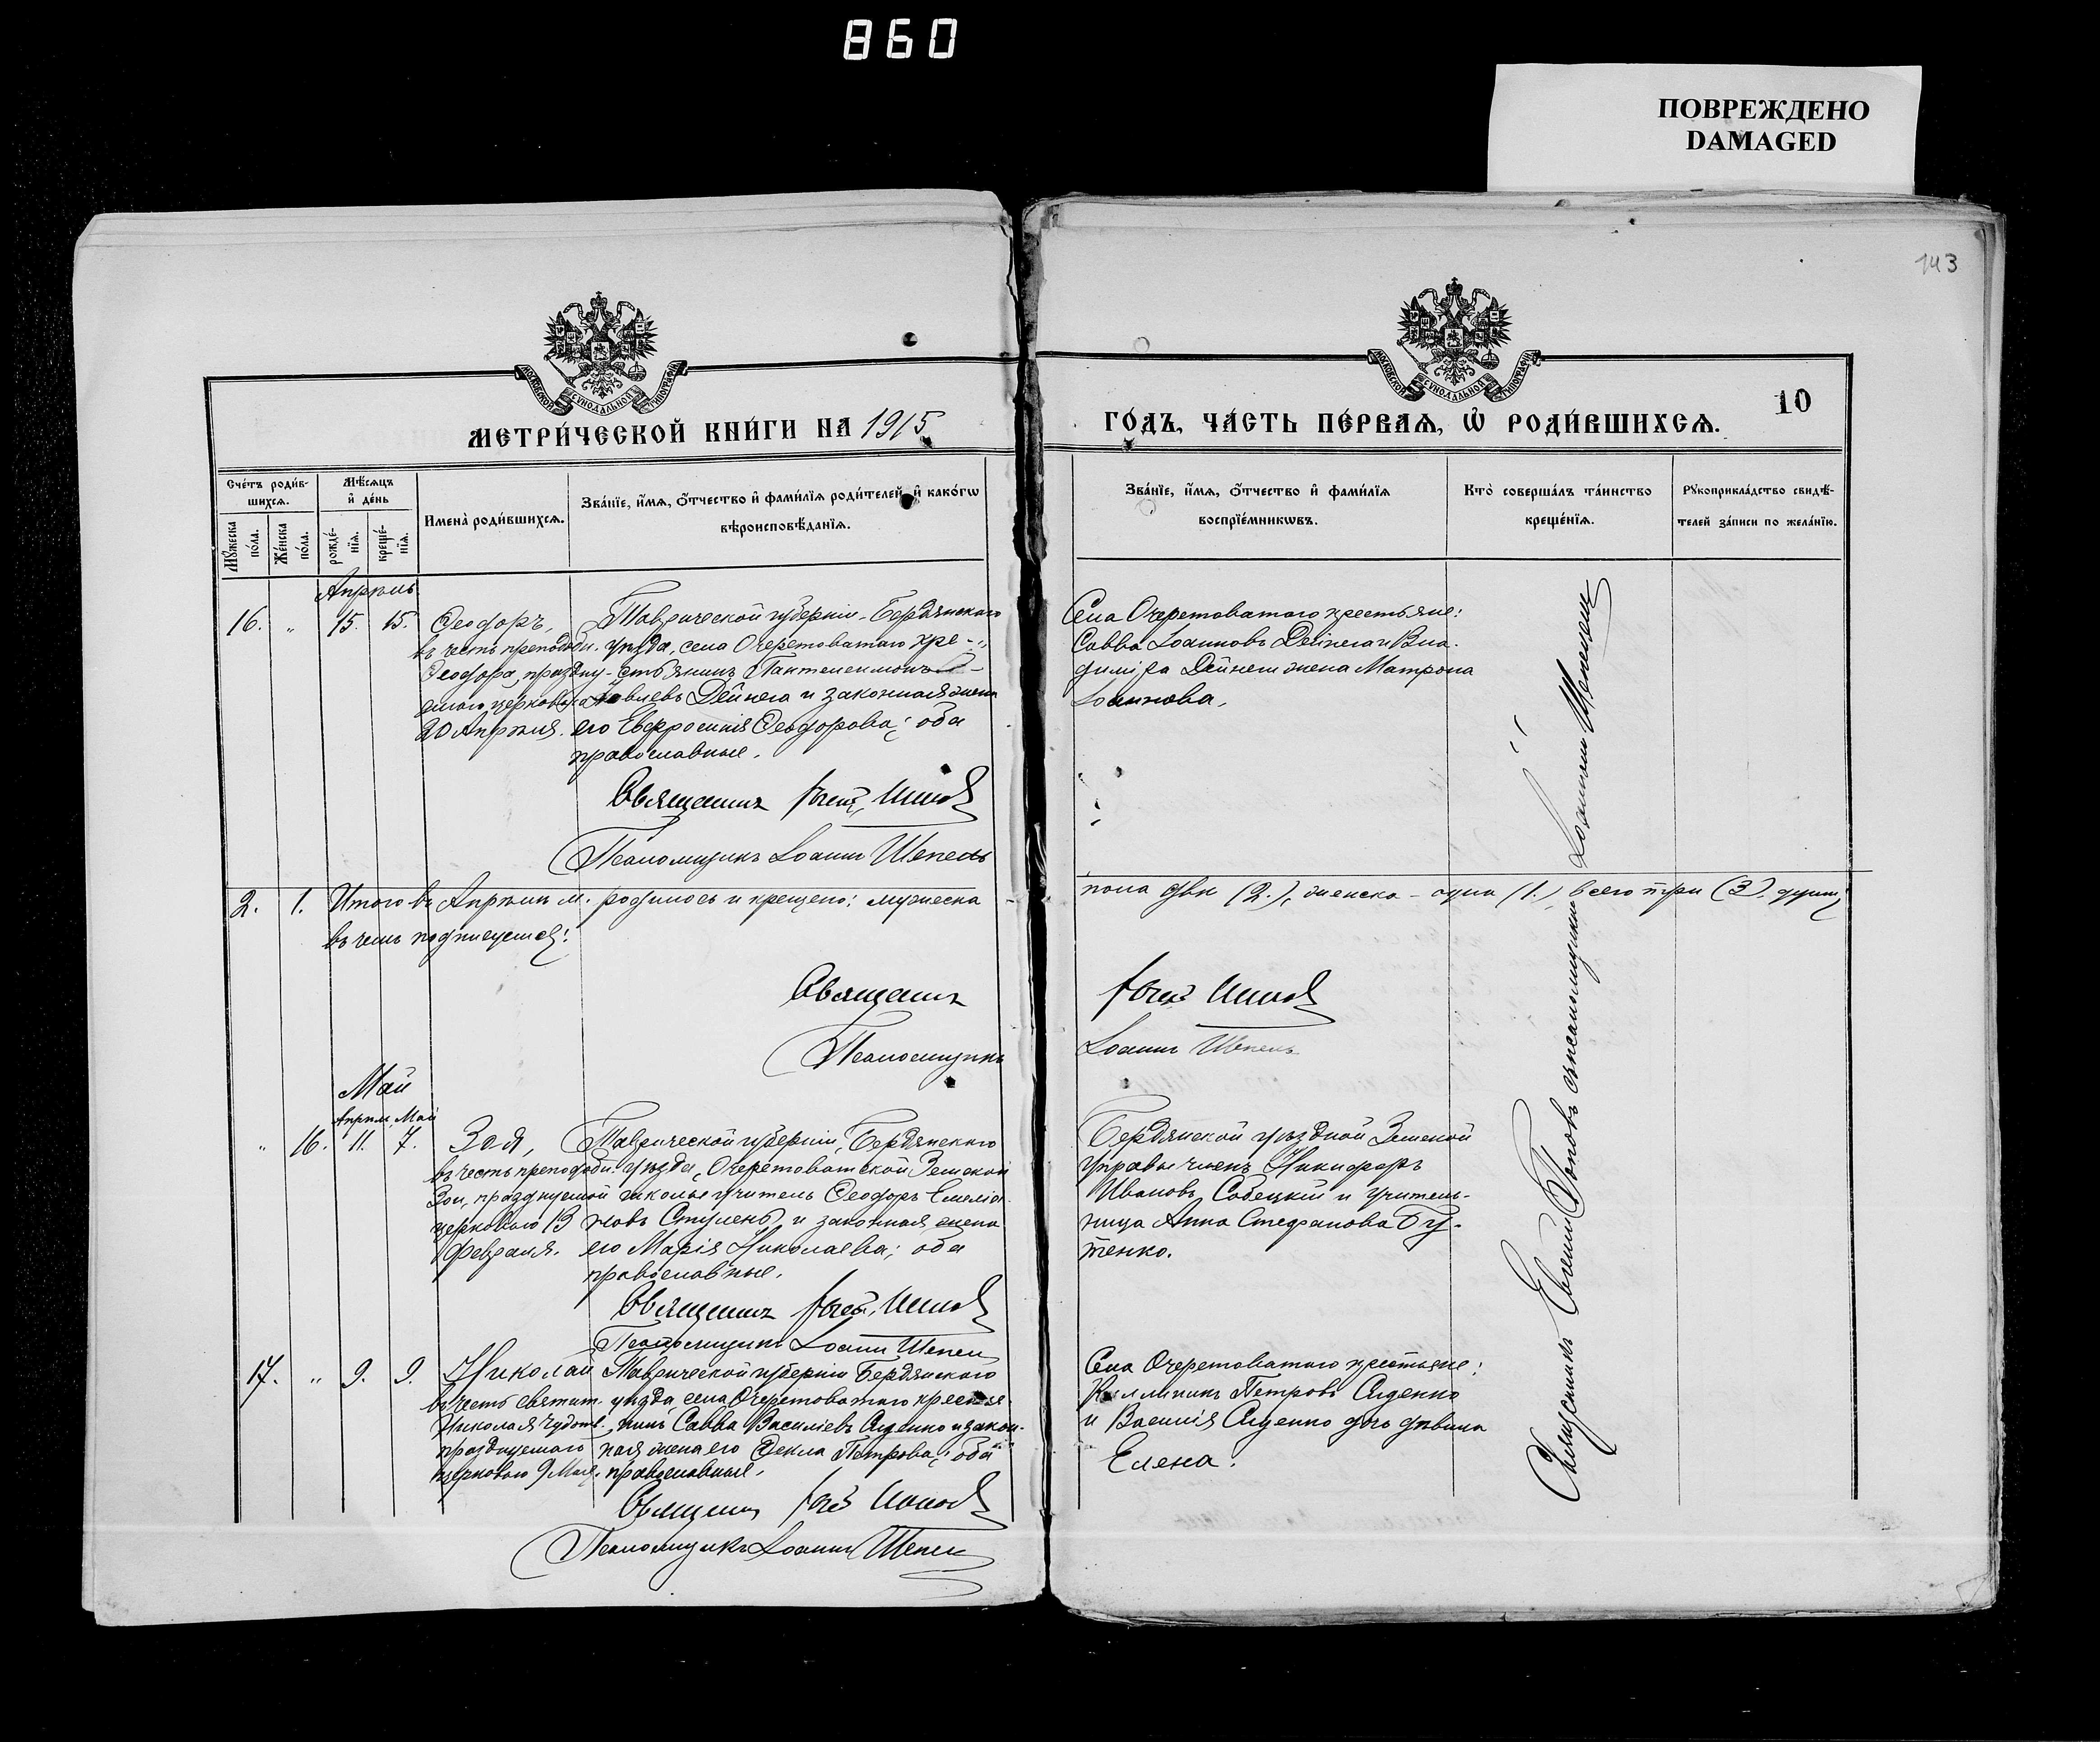 860
ПОВРЕЖДЕНО
DAMAGED
143
МОСКОВСКОЙ СѴНОДАЛЬНОЙ ТИПОГРАФІИ
МОСКОВСКОЙ СѴНОДАЛЬНОЙ ТИПОГРАФІИ
10
МЕТРИ́ЧЕСКОЙ КНИ́ГИ НА 1915
ГО́ДЪ, ЧА́СТЬ ПЕ́РВАѦ, Ѡ РОДИ́ВШИХСѦ.
Сче́тъ роди́в-
шихсѧ.
Мꙋ́жеска
по́ла.
Же́нска
по́ла.
Мѣ́сѧцъ
и҆ де́нь
рожде́-
нїѧ.
креще́-
нїѧ.
Имена̀ роди́вшихсѧ.
Зва́нїе, и҆́мѧ, ѻ҆́тчество и҆ фами́лїѧ роди́телей, и҆ како́гѡ
вѣроисповѣ́данїѧ.
Зва́нїе, и҆́мѧ, ѻ҆́тчество и҆ фами́лїѧ
воспрїе́мникѡвъ.
Кто̀ соверша́лъ та́инство
креще́нїѧ.
Рꙋкоприкла́дство свидѣ́-
телей за́писи по жела́нїю.
Апрѣль
16. " 15. 15.
Ѳеодоръ,
въ честь преподоби.
Ѳеодора, праздну-
емаго церковью
20 Апрѣля.
Таврической губерніи, Бердянскаго
уѣзда, села Очеретоватаго кре-
стьянинъ Пантелеимонъ
Іовлевъ Дейнега и законная жена
его Евфросинія Ѳеодорова; оба
православные.
Священникъ Евгеній Поповъ
Псаломщикъ Іоаннъ Шепель
Села Очеретоватаго крестьяне:
Савва Іоанновъ Дейнега и Вла-
диміра Дейнеги жена Матрона
Іоаннова.
2. 1. Итого въ Апрѣлѣ м. родилось и крещено: мужеска
пола два (2.), женска - одна (1.), всего три (3), души;
въ чемъ подписуемся:
Священникъ
Евгеній Поповъ
Псаломщикъ
Іоаннъ Шепель
Май
Апрѣль Май
" 16. 11. 7.
Зоя,
въ честь преподоби.
Зои, празднуемой
церковью 13
Февраля.
Таврической губерніи, Бердянскаго
уѣзда, Очеретоватской Земской
школы учитель Ѳеодоръ Емелiа-
новъ Ступень и законная жена
его Марія Николаева; оба
православные.
Священникъ Евгеній Поповъ
Псаломщикъ Іоаннъ Шепель
Бердянской уѣздной Земской
Управы членъ Никифоръ
Ивановъ Собецкій и учитель-
ница Анна Стефанова Бу-
тенко.
17. " 9. 9.
Николай
въ честь святит.
Николая Чудотв.,
празднуемаго
церковью 9 Мая.
Таврической губерніи Бердянскаго
уѣзда, села Очеретоватаго крестья-
нинъ Савва Василіевъ Сиденко и закон-
ная жена его Ѳекла Петрова; оба
православные.
Священникъ Евгеній Поповъ
Псаломщикъ Іоаннъ Шепель
Села Очеретоватаго крестьяне:
Каллиникъ Петровъ Сиденко
и Василія Сиденко дочь дѣвица
Елена.
Священникъ Евгеній Поповъ съ псаломщикомъ Іоанномъ Шепелемъ